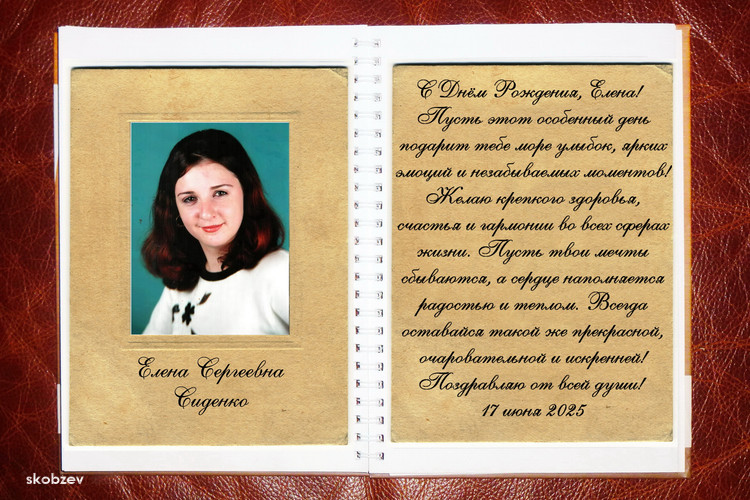 Елена Сергеевна
Сиденко
С Днём Рождения, Елена!
Пусть этот особенный день
подарит тебе море улыбок, ярких
эмоций и незабываемых моментов!
Желаю крепкого здоровья,
счастья и гармонии во всех сферах
жизни. Пусть твои мечты
сбываются, а сердце наполняется
радостью и теплом. Всегда
оставайся такой же прекрасной,
очаровательной и искренней!
Поздравляю от всей души!
17 июня 2025
skobzev